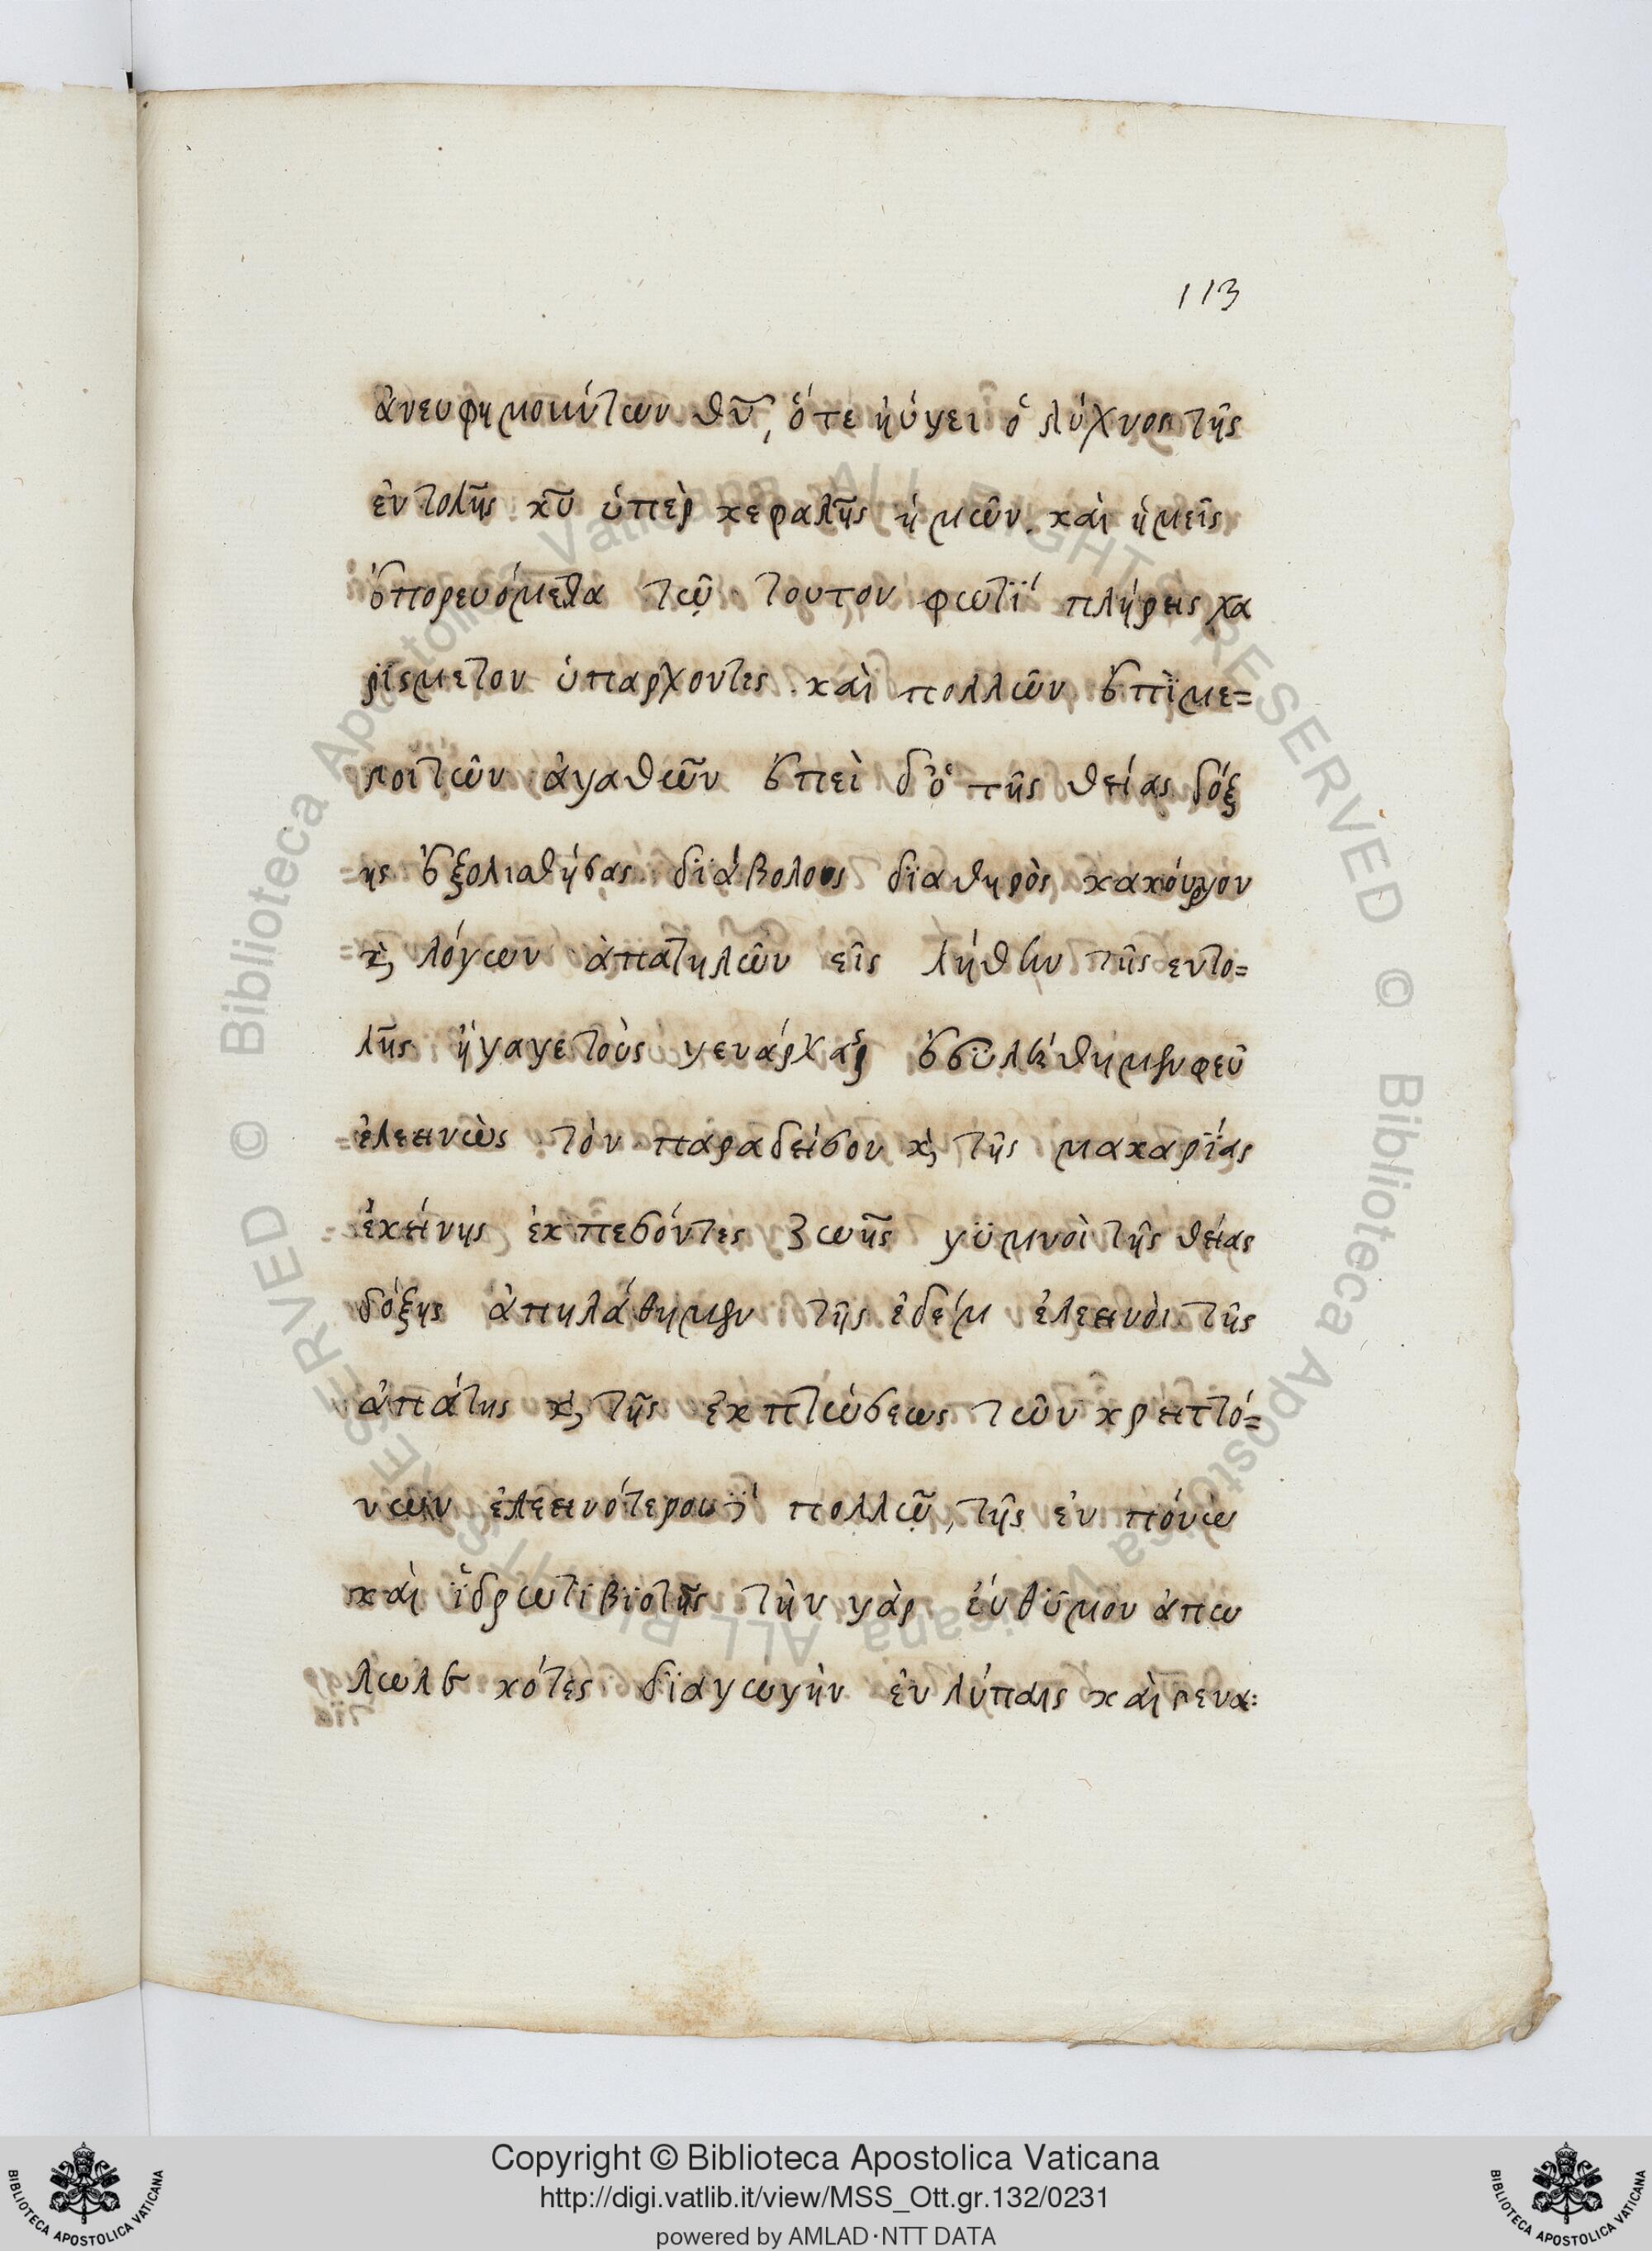 113
ἀνευφημοιύτων θῦ, ὅτε ηὐγει ὁ λύχνος τῆς
ἐντολῆς κῦ ὑπὲρ κεφαλῆς ἡμῶν. καὶ ἡμεῖς
ἐπορευόμεθα τῷ τουτον φωτϊ πλήρεις χα
ρϊσμετον ὑπαρχοντες. καὶ πολλῶν ἐπϊμε=
ποιτῶν ἀγαθῶν ἐπεὶ δ' ὁ τῆς θείας δόξ
ης ἐξολιαθήσας διάβολους δϊαθηρὸς κακούργον
κ, λόγων ἀπατηλῶν εἰς λήθην τῆς εντο=
λῆς ἤγαγε τοὺς γενάρχας ἐσϋλέθημεν φεῦ
ἐλεεινὼς τὸν παραδείσου κ, τῆς μακαρϊας
ἐκείνης ἐκπεσόντες ζωῆς γϋμνοὶ τῆς θείας
δόξης ἀπηλάθημεν τῆς ἐδεμ ἐλεεινὸι τῆς
ἀπάτης κ, τῆς ἐκπτώσεως τῶν κρειττό=
νων ἐλεεινότεροι πολλῷ, τῆς ἐν πόνω
καὶ ἱδρωτι βϊοτῆς τὴν γὰρ ἐύθϋμον ἀπω
λωλε κότες δϊαγωγὴν ἐν λύπαις καὶ σενα:
Copyright © Biblioteca Apostolica Vaticana
http://digi.vatlib.it/view/MSS_Ott.gr.132/0231
powered by AMLAD·NTT DATA
BIBLIOTECA APOSTOLICA VATICANA
BIBLIOTECA APOSTOLICA VATICANA